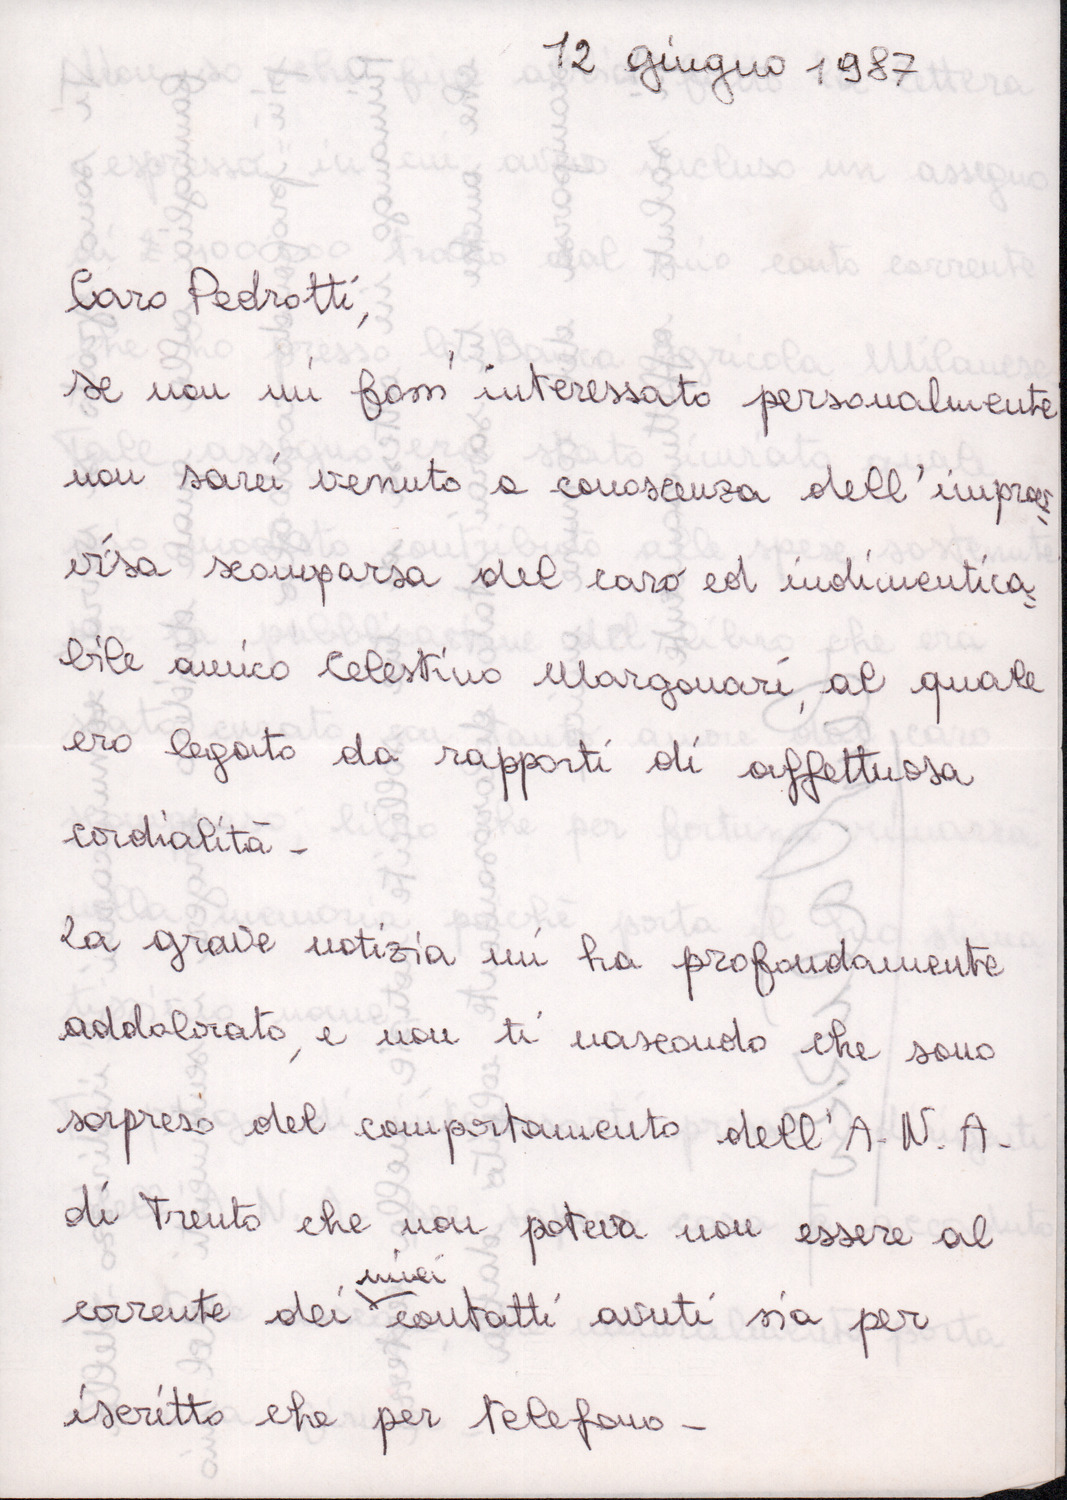 12 giugno 1987
Caro Pedrotti,
se non mi fossi interessato personalmente
non sarei venuto a conoscenza dell'improv=
visa scomparsa del caro ed indimentica=
bile amico Celestino Margonari, al quale
ero legato da rapporti di affettuosa
cordialità -
La grave notizia mi ha profondamente
addolorato, e non ti nascondo che sono
sorpreso del comportamento dell'A.N.A.
di Trento che non poteva non essere al
miei
corrente dei contatti avuti sia per
iscritto che per telefono -